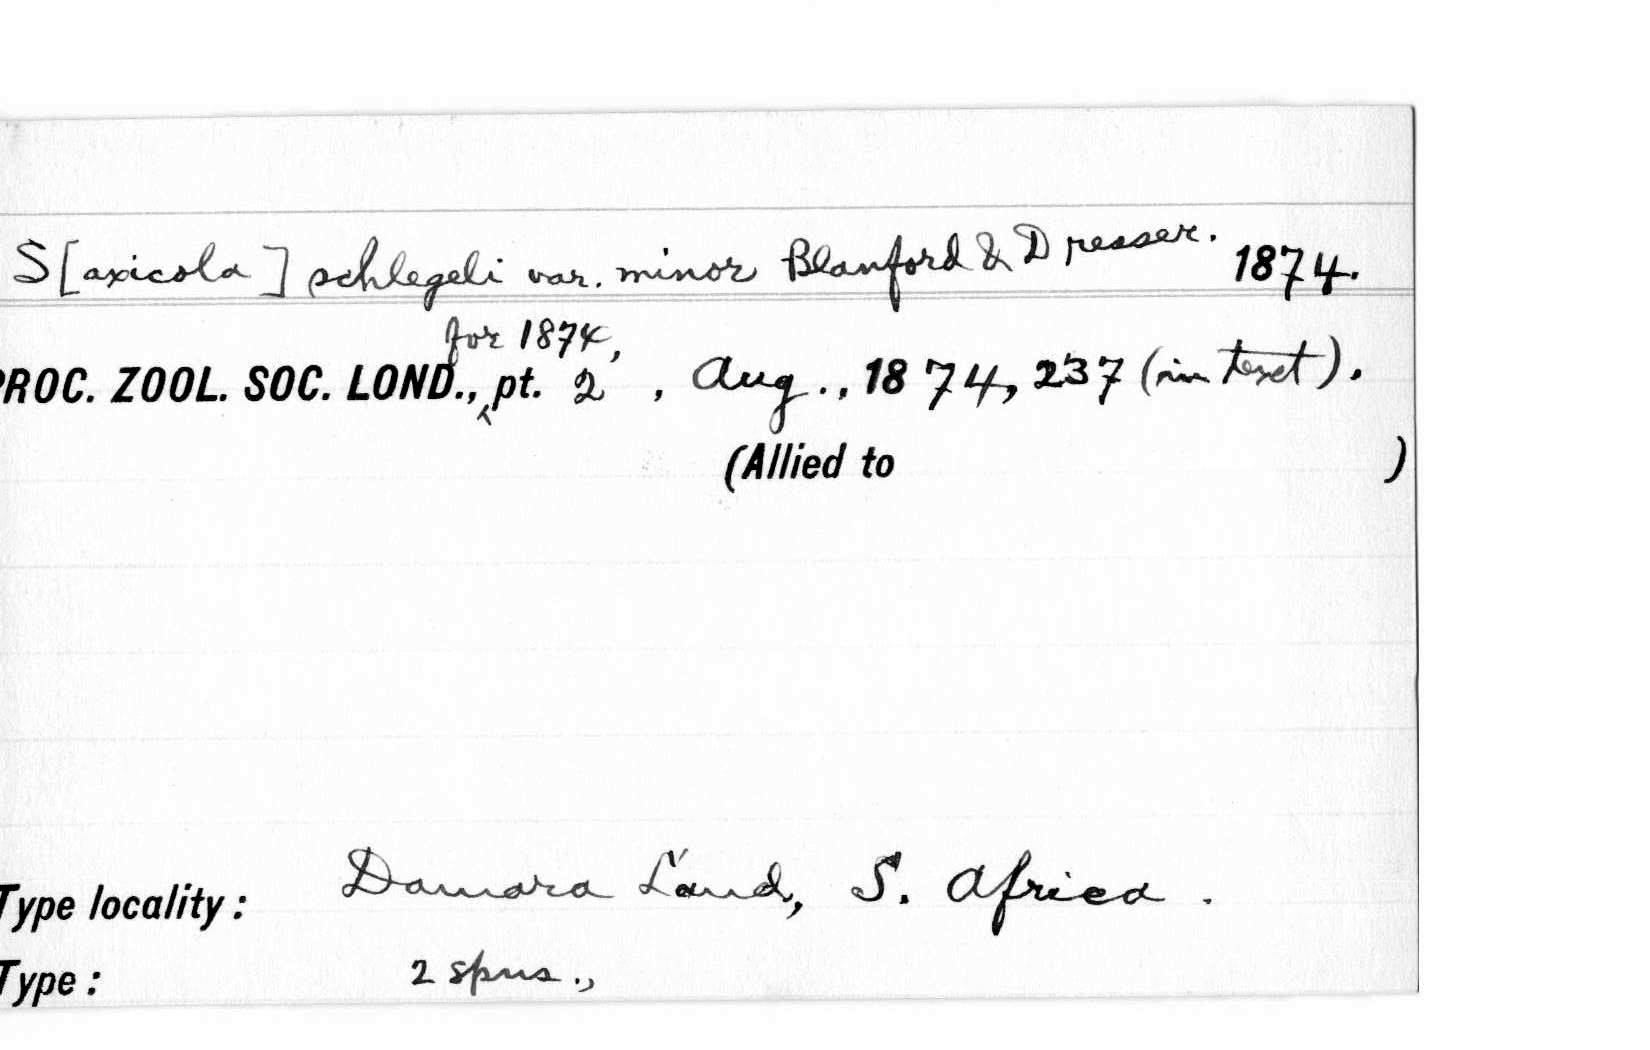 S[axicola] schlegeli var. minor Blanford & Dresser. 1874.
for 1874,
PROC. ZOOL. SOC. LOND., pt. 2, Aug., 1874, 237 (in text).
(Allied to )
Type locality: Damara Land, S. Africa.
Type: 2 spns.,